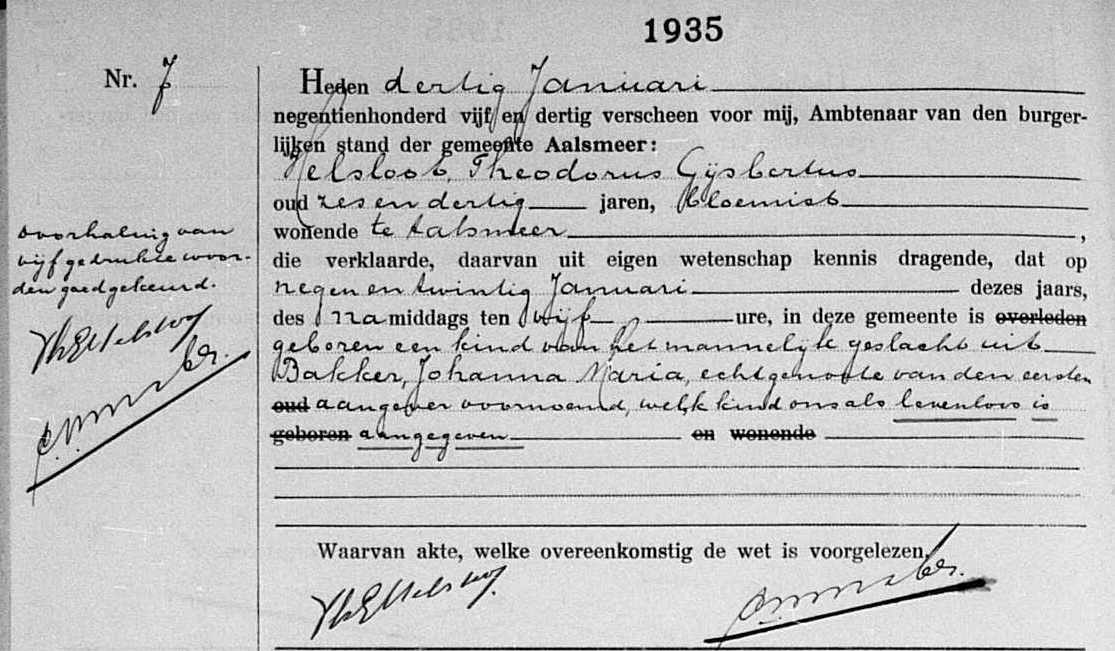 1935
Nr. 7
Heden dertig Januari
negentienhonderd vijf en dertig verscheen voor mij, Ambtenaar van den burger-
lijken stand der gemeente Aalsmeer:
Helsloot, Theodorus Gijsbertus
oud zes en dertig jaren, bloemist
wonende te Aalsmeer,
die verklaarde, daarvan uit eigen wetenschap kennis dragende, dat op
negen en twintig Januari dezes jaars,
des namiddags ten vijf ure, in deze gemeente is overleden
geboren een kind van het mannelijk geslacht uit
Bakker, Johanna Maria, echtgenoote van den eersten
oud aangever voornoemd, welk kind ons als levenloos is
geboren aangegeven en wonende
Doorhaling van
vijf gedrukte woor-
den goedgekeurd.
ThGHelsloot
Waarvan akte, welke overeenkomstig de wet is voorgelezen,
ThGHelsloot